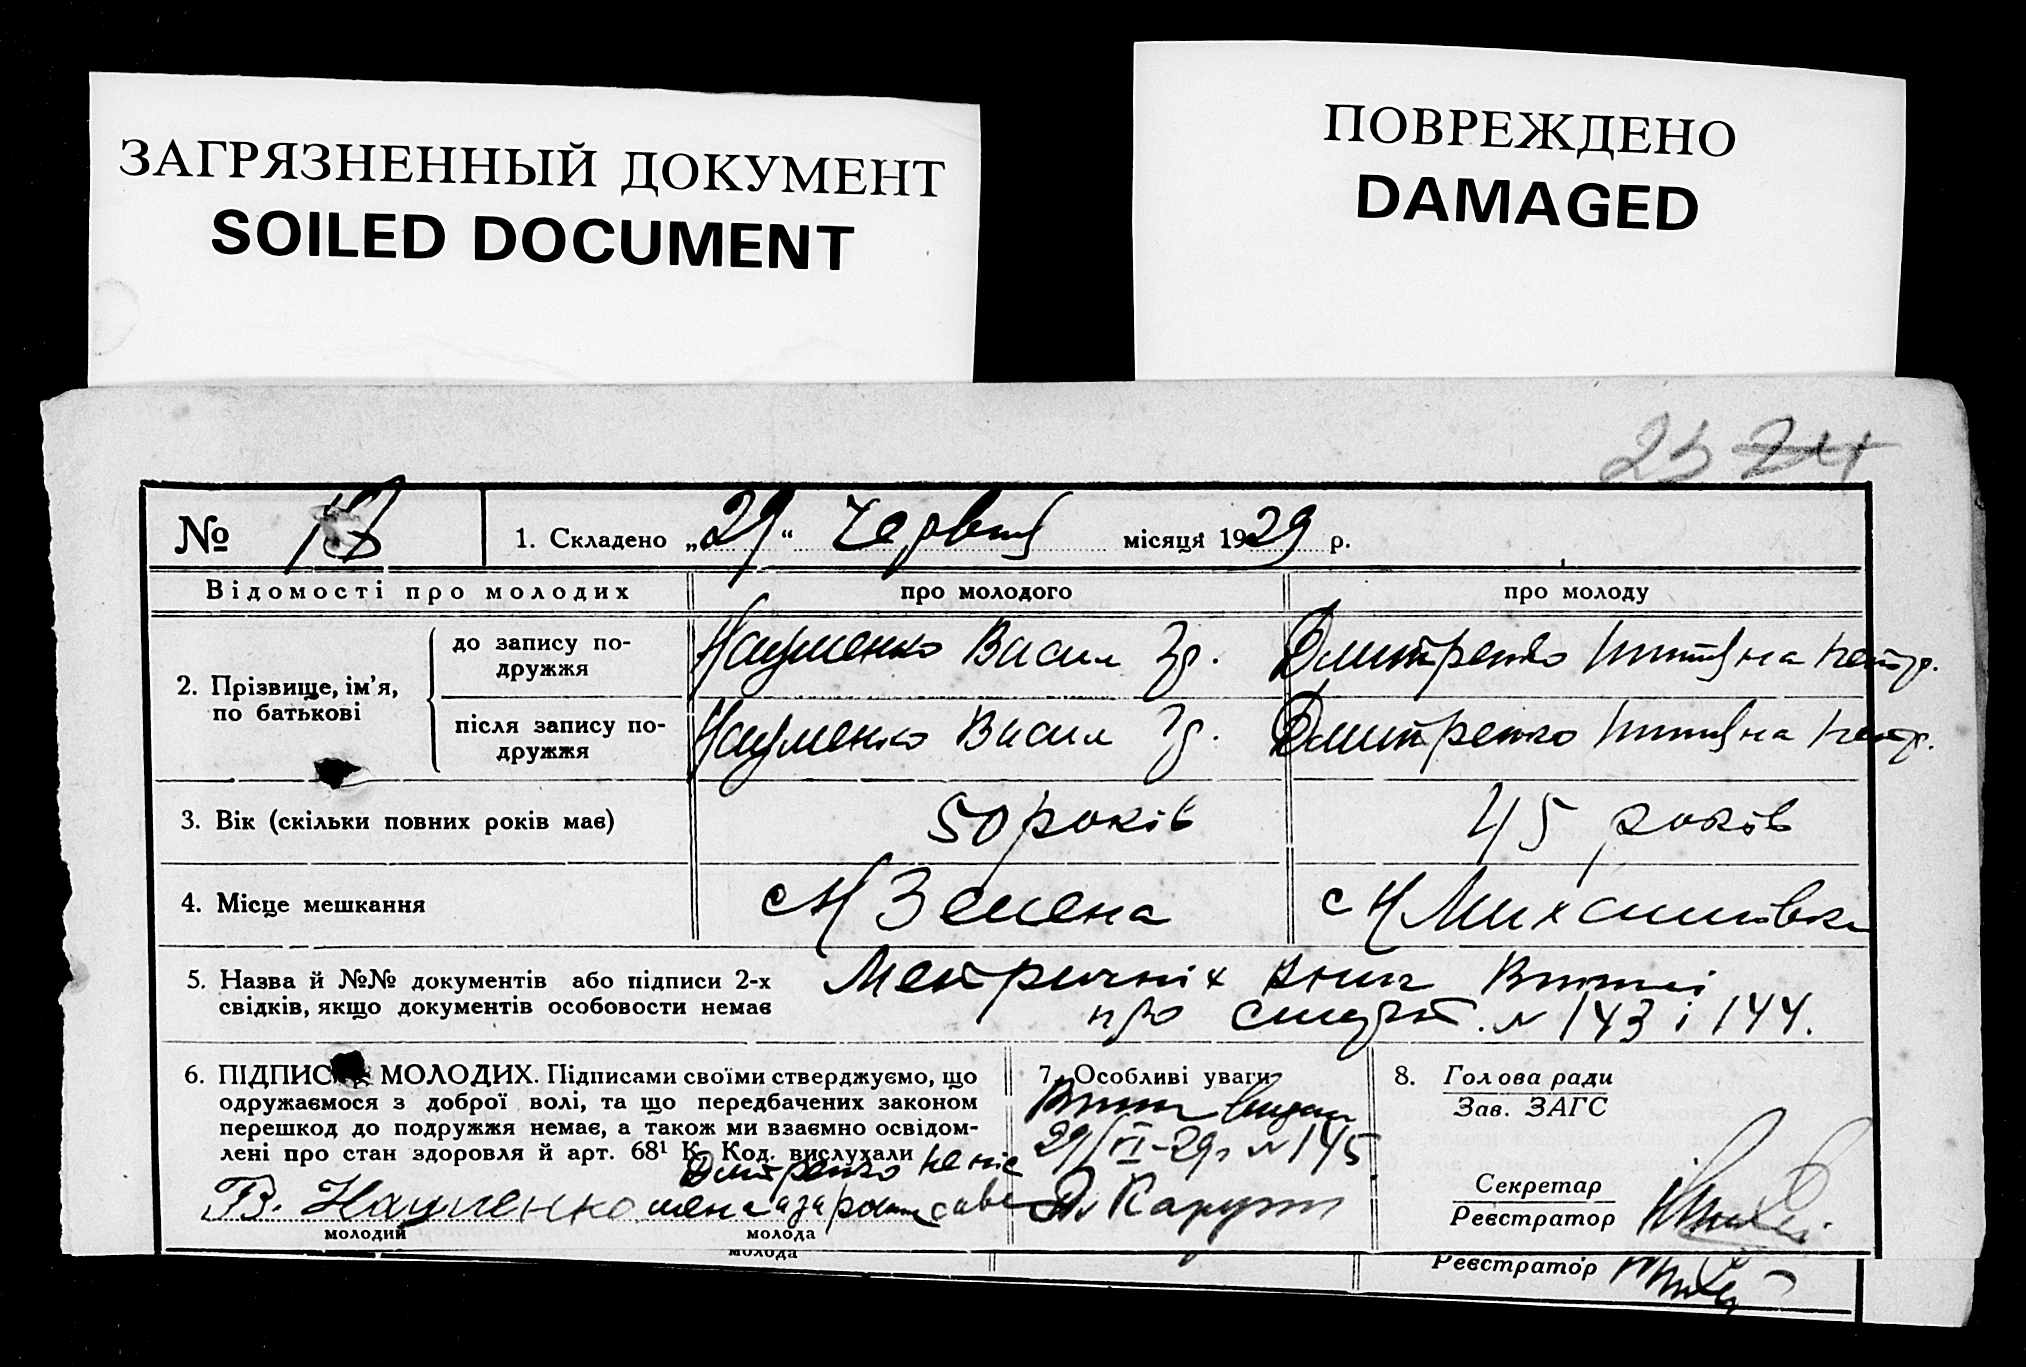 ЗАГРЯЗНЕННЫЙ ДОКУМЕНТ
SOILED DOCUMENT
ПОВРЕЖДЕНО
DAMAGED
25 24
№ 18
1. Складено „29“ Червня місяця 1929 р.
Відомості про молодих
про молодого
про молоду
2. Прізвище, ім'я,
по батькові
до запису по-
дружжя
Науменко Васил
Дмитренко
після запису по-
дружжя
Науменко Васил
Дмитренко
3. Вік (скільки повних років має)
50 років
45 років
4. Місце мешкання
с
с
5. Назва й №№ документів або підписи 2-х
свідків, якщо документів особовости немає
Метричніх
про смерт. № 143 і 144.
6. ПІДПИС МОЛОДИХ. Підписами своїми стверджуємо, що
одружаємося з доброї волі, та що передбачених законом
перешкод до подружжя немає, а також ми взаємно освідом-
лені про стан здоровля й арт. 68¹ К. Код. вислухали
Дмитренко
В. Науменко
молодий
молода
7. Особливі уваги
29/VI-29р №145
8. Голова ради
Зав. ЗАГС
Секретар
Реєстратор
молода
Реєстратор